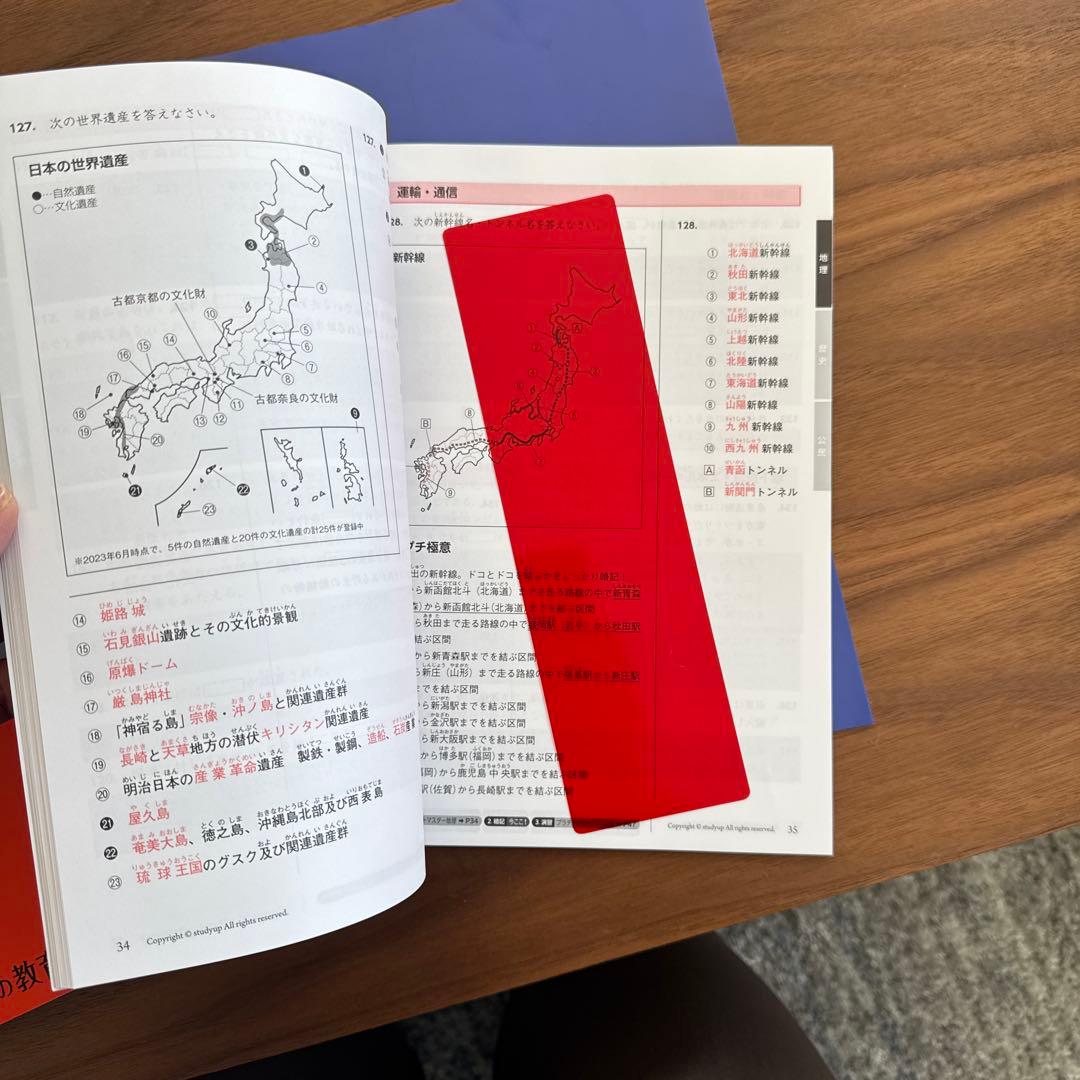 127. 次の世界遺産を答えなさい。
日本の世界遺産
●…自然遺産
○…文化遺産
❶
②
❸
④
古都京都の文化財
⑩
⑤
⑥
⑦
⑧
⑭
⑮
⑯
⑰
⑱
⑲
⑳
⑬
⑫
⑪
古都奈良の文化財
❾
㉑
㉒
㉓
※2023年6月時点で、5件の自然遺産と20件の文化遺産の計25件が登録中
⑭ 姫路城
⑮ 石見銀山遺跡とその文化的景観
⑯ 原爆ドーム
⑰ 厳島神社
⑱ 「神宿る島」宗像・沖ノ島と関連遺産群
⑲ 長崎と天草地方の潜伏キリシタン関連遺産
⑳ 明治日本の産業革命遺産 製鉄・製鋼、造船、石炭産業
㉑ 屋久島
㉒ 奄美大島、徳之島、沖縄島北部及び西表島
㉓ 琉球王国のグスク及び関連遺産群
34 Copyright © studyup All rights reserved.
127.
運輸・通信
28. 次の新幹線名、トンネル名を答えなさい。
新幹線
A
B
⑧
⑨
プチ極意
出の新幹線。ドコとドコを
ら新函館北斗（北海道）までを走る路線の中で新青森
森）から新函館北斗（北海道）までを結ぶ区間
ら秋田まで走る路線の中で盛岡駅（岩手）から秋田駅
結ぶ区間
から新青森駅までを結ぶ区間
ら新庄（山形）まで走る路線の中で福島駅から新庄駅
までを結ぶ区間
から新潟駅までを結ぶ区間
から金沢駅までを結ぶ区間
ら新大阪駅までを結ぶ区間
から博多駅（福岡）までを結ぶ区間
福岡）から鹿児島中央駅までを結ぶ区間
駅（佐賀）から長崎駅までを結ぶ区間
➡P34 2 暗記 今ここ！ 3. 演習
128.
① 北海道新幹線
② 秋田新幹線
③ 東北新幹線
④ 山形新幹線
⑤ 上越新幹線
⑥ 北陸新幹線
⑦ 東海道新幹線
⑧ 山陽新幹線
⑨ 九州新幹線
⑩ 西九州新幹線
A 青函トンネル
B 新関門トンネル
地理
歴史
公民
Copyright © studyup All rights reserved. 35
の教育